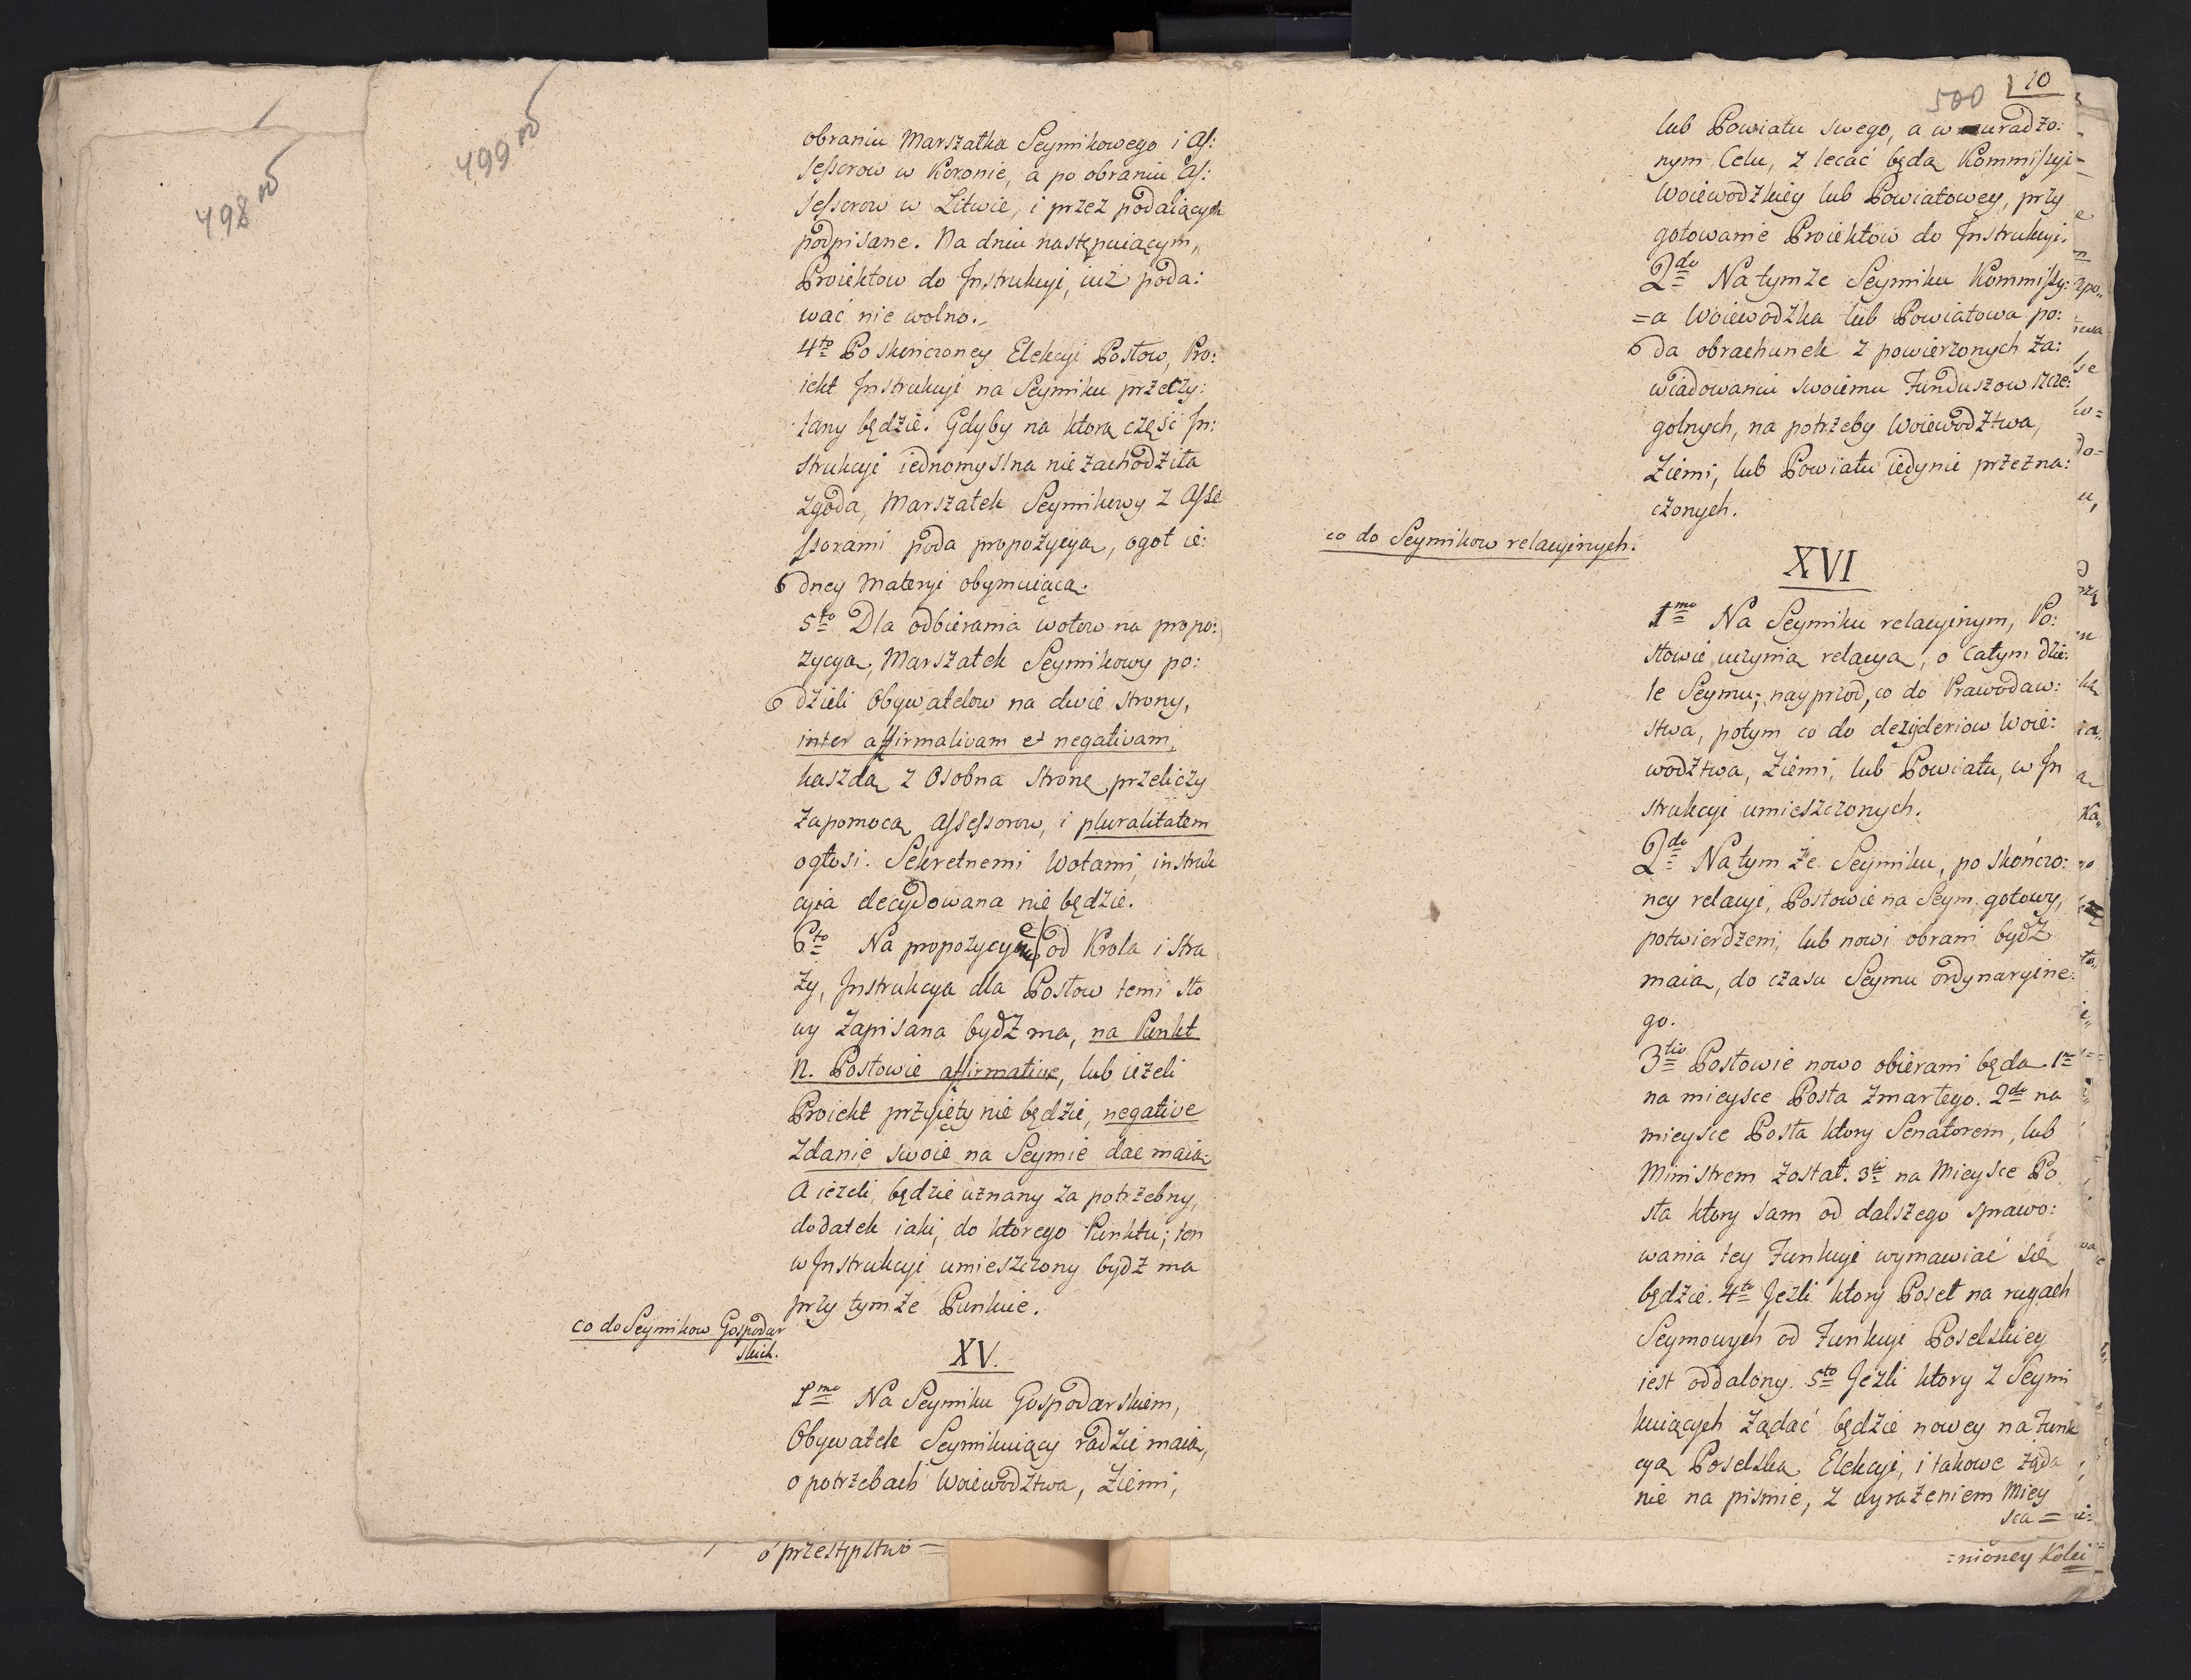 498 v
499 v
obraniu Marszałka Seymikowego i As:
sessorow w Koronie, a po obraniu As:
sessorow w Litwie, i przez podaiących
podpisane. Na dniu następuiącym,
Proiektow do Jnstrukcyi, iuż poda:
wać nie wolno.
4to Po skończoney Elekcyi Posłow, Pro:
iekt Jnstrukcyi na Seymiku przeczy:
tany będzie. Gdyby na ktorą część Jn:
strukcyi iednomyslna nie zachodziła
zgoda, Marszałek Seymikowy z Asse
ssorami poda propozycyą, ogoł ie:
dney materyi obymuiącą.
5to Dla odbierania wotow na propo:
zycyą, Marszałek Seymikowy po:
dzieli Obywatelow na dwie strony,
inter affirmativam et negativam,
kaszdą z Osobna stronę przeliczy
za pomocą Assessorow, i pluralitatem
ogłosi. Sekretnemi Wotami, instruk
cyia decydowana nie będzie.
6to Na propozycye od Krola i Stra
ży, Jnstrukcya dla Posłow temi sło
wy zapisana bydź ma, na Punkt
N. Posłowie affirmative, lub ieżeli
Proiekt przyięty nie będzie, negative
zdanie swoie na Seymie dac maią
A ieżeli będzie uznany za potrzebny,
dodatek iaki, do ktorego Punktu; ten
w Jnstrukcyi umieszczony bydź ma
przy tymże Punkcie.
co do Seymikow Gospodar
skich.
XV.
1mo Na Seymiku Gospodarskiem,
Obywatele Seymikuiący radzić maią,
o potrzebach Woiewodztwa, Ziemi,
o przestępstwo =
500
10
lub Powiatu swego, a w uradzo:
nym Celu, zlecać będą Kommissyi
Woiewodzkiey lub Powiatowey, przy
gotowanie Proiektow do Jnstrukcyi.
2do Na tymże Seymiku Kommissy:
=a Woiewodzka lub Powiatowa po:
da obrachunek z powierzonych za:
wiadowaniu swoiemu Funduszow szcze:
golnych, na potrzeby Woiewodztwa,
Ziemi, lub Powiatu iedynie przezna:
czonych.
co do Seymikow relacyinych.
XVI
1mo Na Seymiku relacyinym, Po:
słowie uczynią relacyą, o całym dzie:
le Seymu; nayprzod, co do Prawodaw:
stwa, potym co do dezyderiow Woie:
wodztwa, Ziemi, lub Powiatu, w Jn
strukcyi umieszczonych.
2do Na tym że Seymiku, po skończo:
ney relacyi, Posłowie na Seym gotowy,
potwierdzeni, lub nowi obrani bydź
maią, do czasu Seymu ordynaryine:
go.
3tio Posłowie nowo obierani będą 1mo
na mieysce Posła zmarłego. 2do na
mieysce Posła ktory Senatorem, lub
Ministrem został. 3tio na Mieysce Po
sła ktory sam od dalszego sprawo:
wania tey Funkcyi wymawiać się
będzie. 4to Jeżli ktory Poseł na rugach
Seymowych od Funkcyi Poselskiey
iest oddalony. 5to Jeżli ktory z Seymi
kuiących żądać będzie nowey na Funk
cyą Poselską Elekcyi, i takowe żąda
nie na pismie, z wyrażeniem Miey
sca =
=nioney Kolei